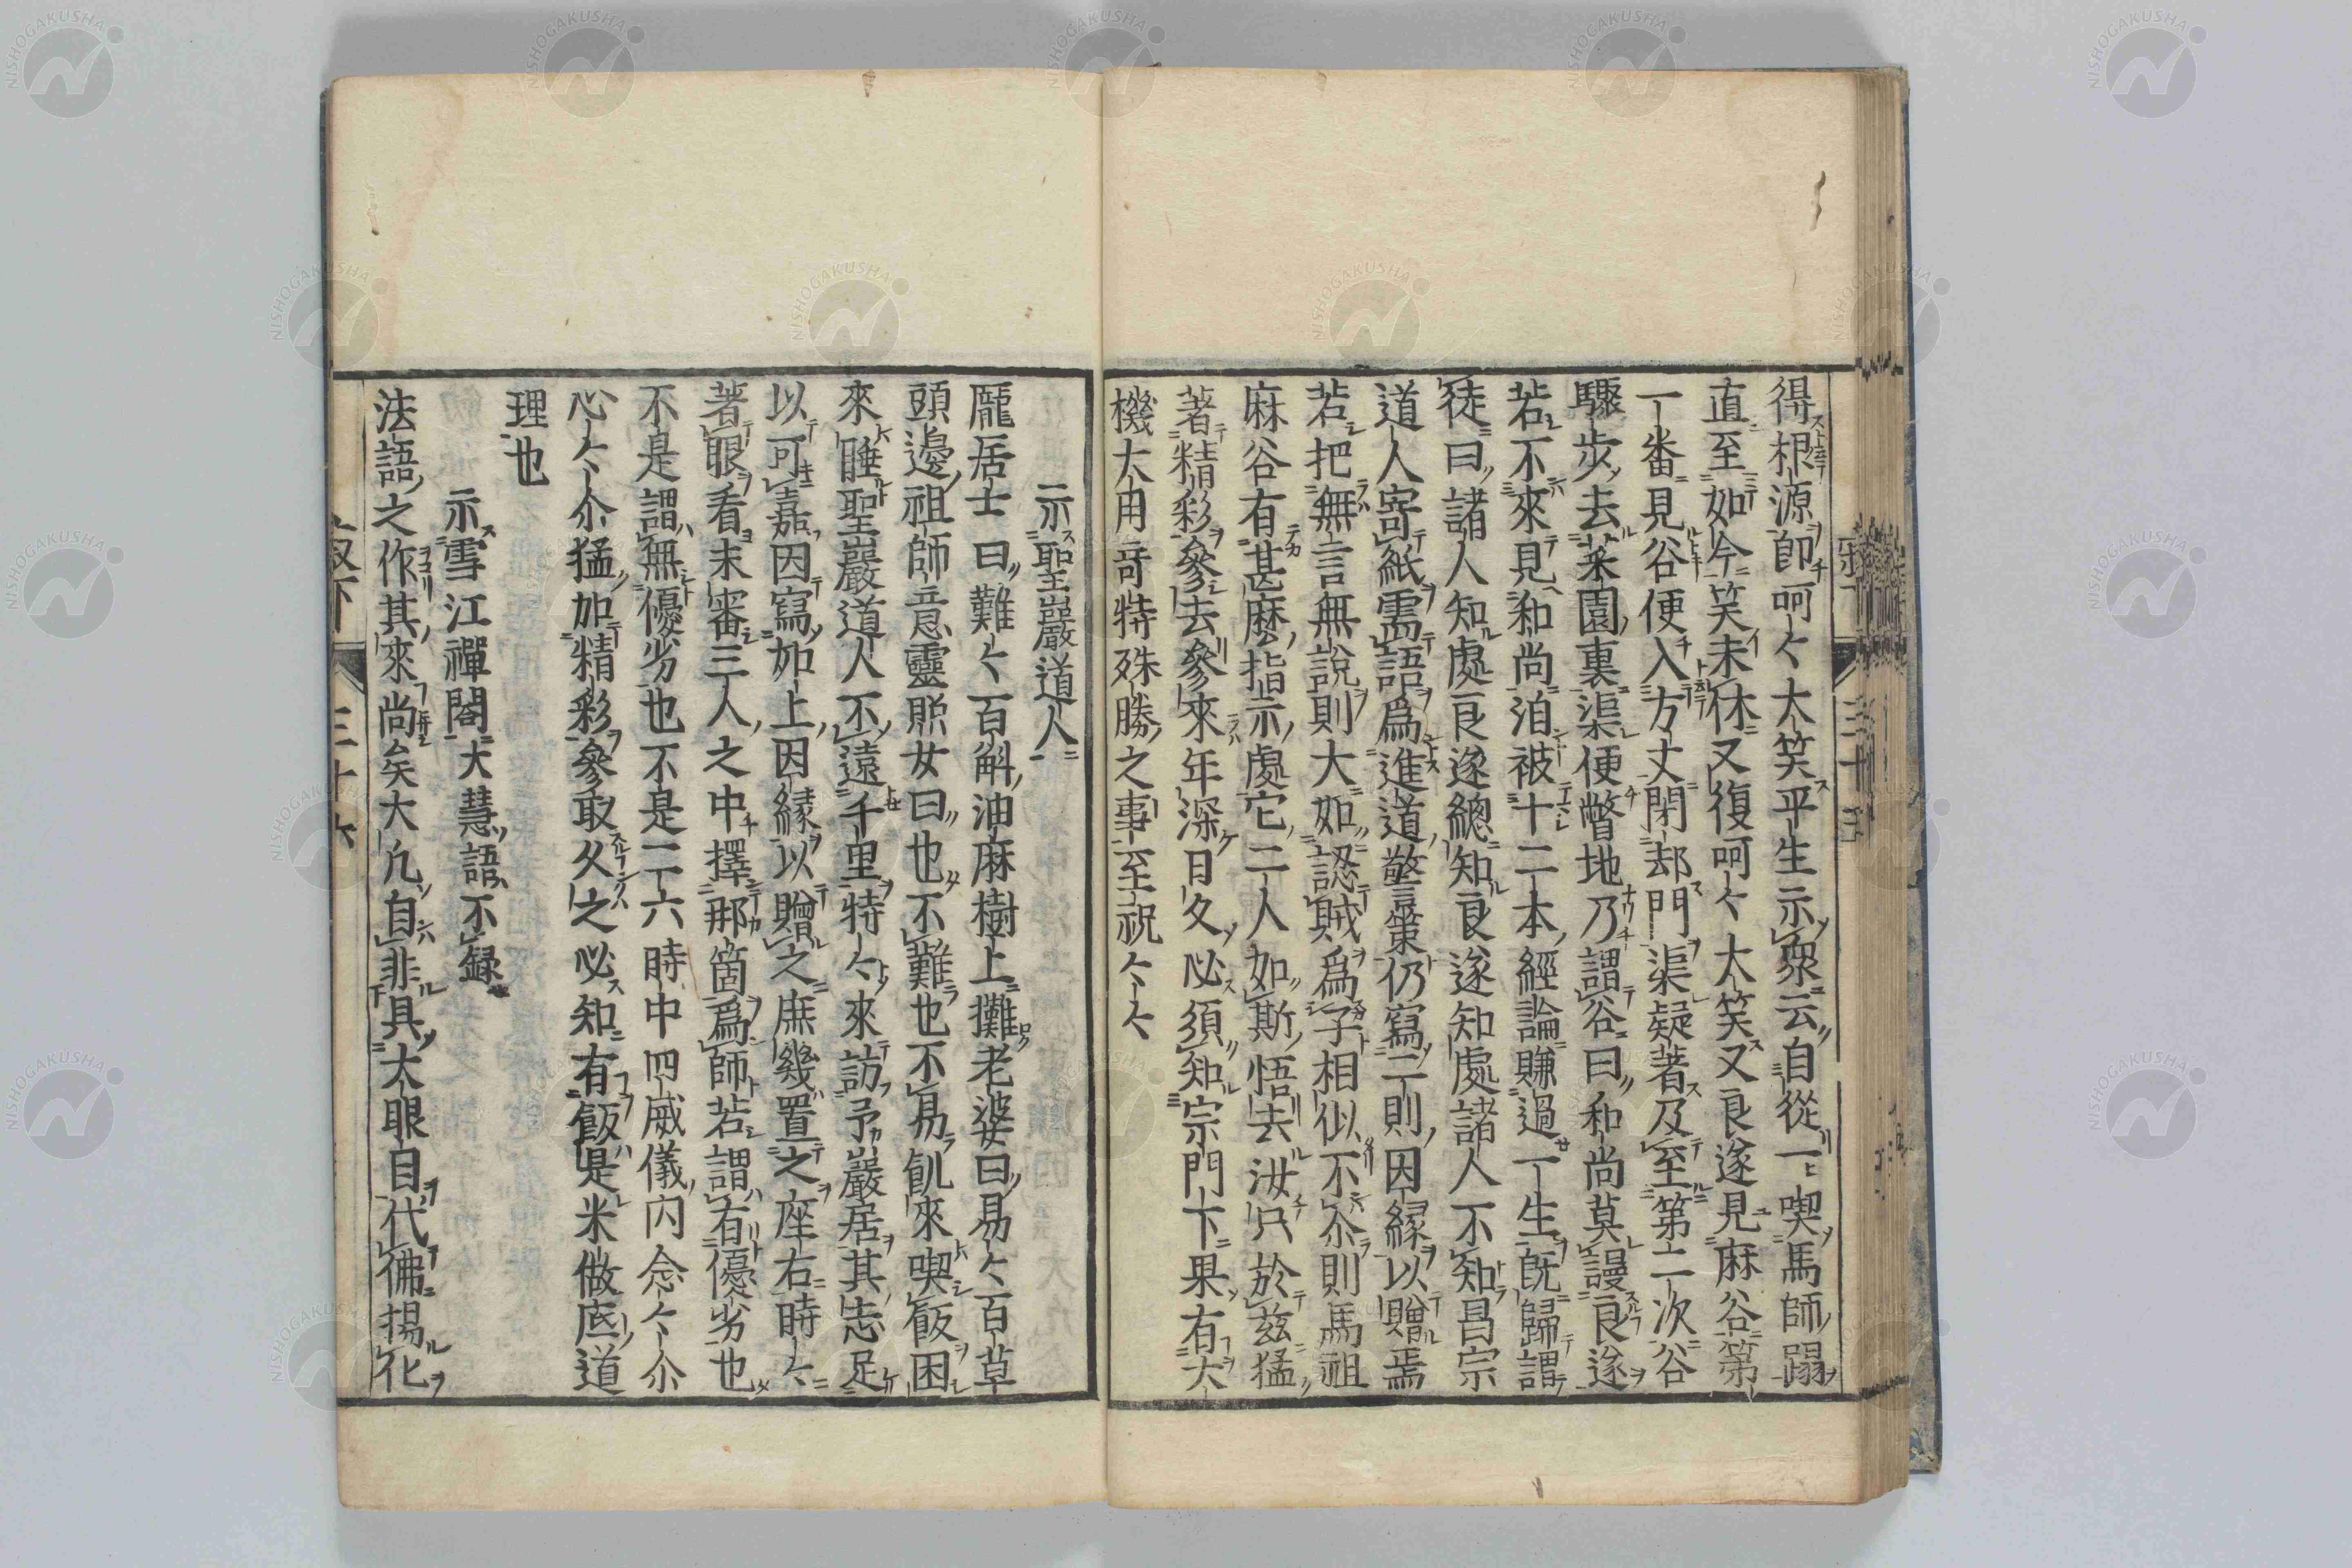 得根源卽呵〻大笑平生示衆云自從一喫馬師蹋
直至如今笑未休又復呵〻大笑又良遂見麻谷第
一番見谷便入方丈閉却門渠疑著及至第二次谷
驟步去菜園裏渠便瞥地乃謂谷曰和尚莫謾良遂
若不來見和尚洎被十二本經論賺過一生旣歸謂
徒曰諸人知處良遂總知良遂知處諸人不知昌宗
道人寄紙需語爲進道警策仍寫二則因緣以贈焉
若把無言無說則大如認賊爲子相似不尒則馬祖
麻谷有甚麽指示處它二人如斯悟去汝只於茲猛
著精彩參去參來年深日久必須知宗門下果有大
機大用奇特殊勝之事至祝〻〻
示聖巖道人
龐居士曰難〻百斛油麻樹上攤老婆曰易〻百草
頭邊祖師意靈照女曰也不難也不易飢來喫飯困
來睡聖巖道人不遠千里特〻來訪予巖居其志足
以可嘉因寫如上因緣以贈之庶幾置之座右時〻
著眼看未審三人之中擇那箇爲師若謂有優劣也
不是謂無優劣也不是二六時中四威儀內念〻尒
心〻尒猛加精彩參取久之必知有飯是米做底道
理也
示雪江禪閤 大慧語不錄
法語之作其來尚矣大凡自非具大眼目代佛揚化